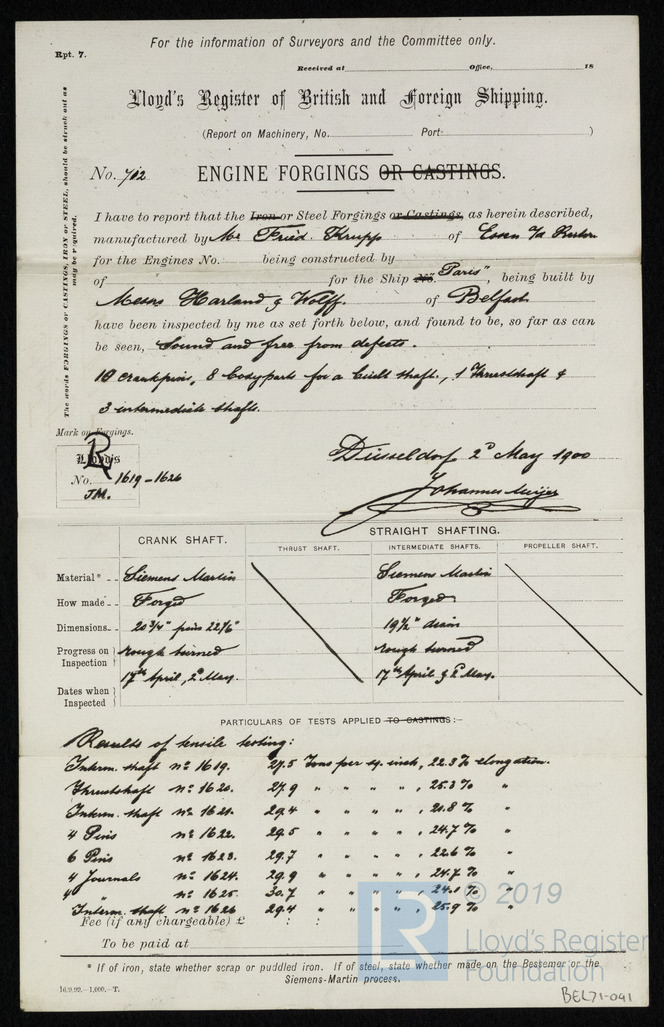 For the information of Surveyors and the Committee only.
Rpt. 7.
Received at Office, 18
Lloyd's Register of British and Foreign Shipping.
(Report on Machinery, No. Port )
No. 712 ENGINE FORGINGS OR CASTINGS.
The words FORGINGS or CASTINGS, IRON or STEEL, should be struck out as
may be required.
I have to report that the Iron or Steel Forgings or Castings, as herein described,
manufactured by Mr Fried. Krupp of Essen
for the Engines No. being constructed by
of for the Ship No. "Paris", being built by
Messrs Harland & Wolff. of Belfast
have been inspected by me as set forth below, and found to be, so far as can
be seen, Sound and free from defects.
10 crankpins, 8 bodyparts for a built shaft., 1 Thrustshaft &
3 intermediate shafts.
Mark on Forgings.
LR
Lloyd's
No. 1619-1626
J.M.
Düsseldorf 2d May 1900
Johannes Meijer
CRANK SHAFT. STRAIGHT SHAFTING.
THRUST SHAFT. INTERMEDIATE SHAFTS. PROPELLER SHAFT.
Material* Siemens Martin Siemens Martin
How made Forged Forged
Dimensions 20 3/4" pins 22 7/8" 19 1/2" diam
Progress on Inspection rough turned rough turned
Dates when Inspected 17th April, 2d May. 17th April & 2d May.
PARTICULARS OF TESTS APPLIED TO CASTINGS:—
Results of tensile testing:
Interm. shaft no 1619. 27.5 Tons per sq. inch, 22.3% elongation.
Thrustshaft no 1620. 27.9 " " " " , 25.3% "
Interm. shaft no 1621. 29.4 " " " " , 21.8% "
4 Pins no 1622. 29.5 " " " " , 24.7% "
6 Pins no 1623. 29.7 " " " " , 22.6% "
4 Journals no 1624. 29.9 " " " " , 24.7% "
4 " no 1625. 30.7 " " " " , 24.1% "
Interm. shaft no 1626 29.4 " " " " , 25.9% "
Fee (if any chargeable) £ : :
To be paid at
* If of iron, state whether scrap or puddled iron. If of steel, state whether made on the Bessemer or the
Siemens-Martin process.
16.9.99.—1,000.—T.
BEL71-091
LR
© 2019
Lloyd's Register
Foundation